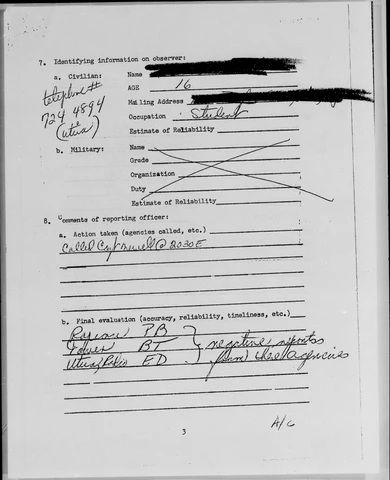 7. Identifying information on observer:
a. Civilian: Name
AGE 16
telephone #
724 4894
(utica)
Mailing Address
Occupation Student
Estimate of Reliability
b. Military: Name
Grade
Organization
Duty
Estimate of Reliability
8. Comments of reporting officer:
a. Action taken (agencies called, etc.)
Called Cpt @ 2030 E
b. Final evaluation (accuracy, reliability, timeliness, etc.)
Rapcon PB
Tower BT negative reports
Utica Radio ED from these agencies
3
A/C